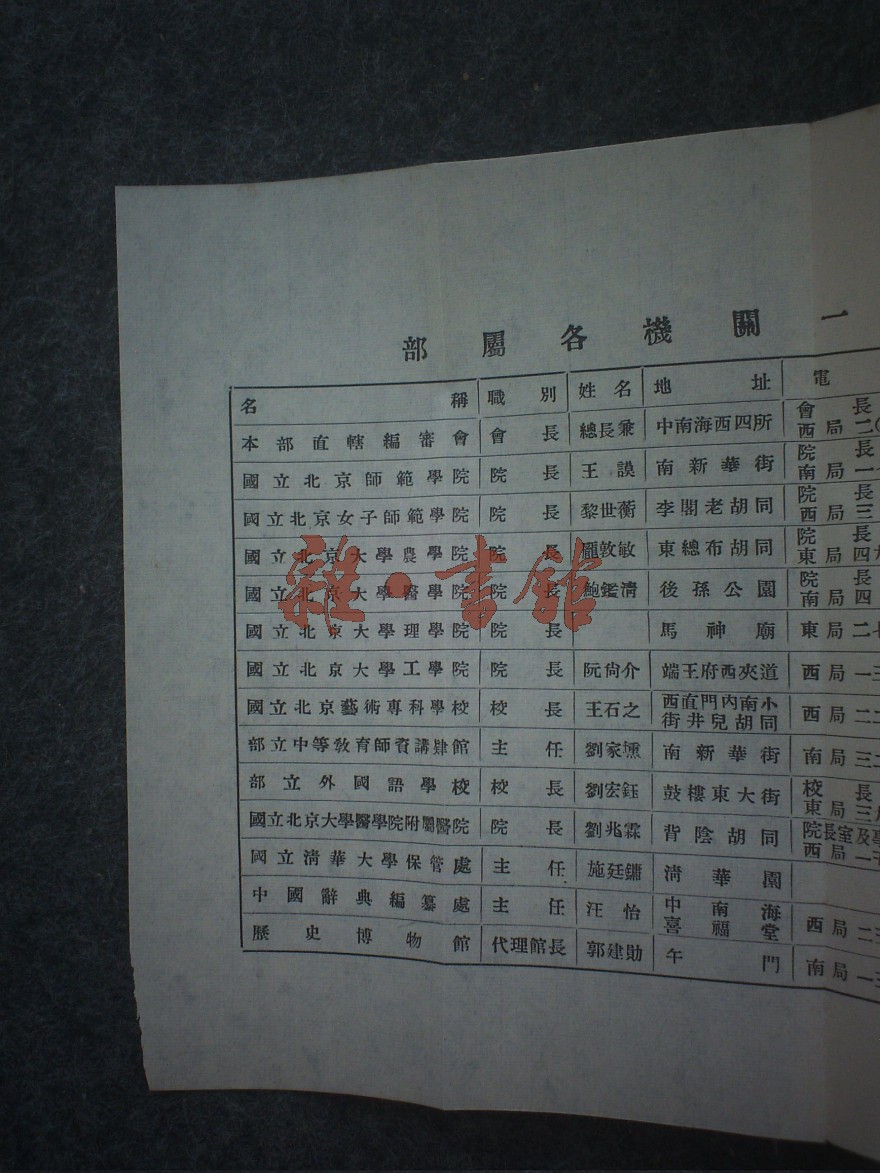 部屬各機關一
名稱 職別 姓名 地址 電
本部直轄編審會 會長 總長兼 中南海西四所 會長 西局二〇
國立北京師範學院 院長 王謨 南新華街 院長 南局一
國立北京女子師範學院 院長 黎世蘅 李閣老胡同 院長 西局三
國立北京大學農學院 院長 龐敦敏 東總布胡同 院長 東局四九
國立北京大學醫學院 院長 鮑鑑清 後孫公園 院長 南局四
國立北京大學理學院 院長 馬神廟 東局二七
國立北京大學工學院 院長 阮尙介 端王府西夾道 西局一三
國立北京藝術專科學校 校長 王石之 西直門內南小街井兒胡同 西局二
部立中等敎育師資講肄館 主任 劉家壎 南新華街 南局三二
部立外國語學校 校長 劉宏鈺 鼓樓東大街 校長 東局三
國立北京大學醫學院附屬醫院 院長 劉兆霖 背陰胡同 院長室及 西局一
國立淸華大學保管處 主任 施廷鏞 淸華園
中國辭典編纂處 主任 汪怡 中南海喜福堂 西局二
歷史博物館 代理館長 郭建勛 午門 南局一
雜·書館